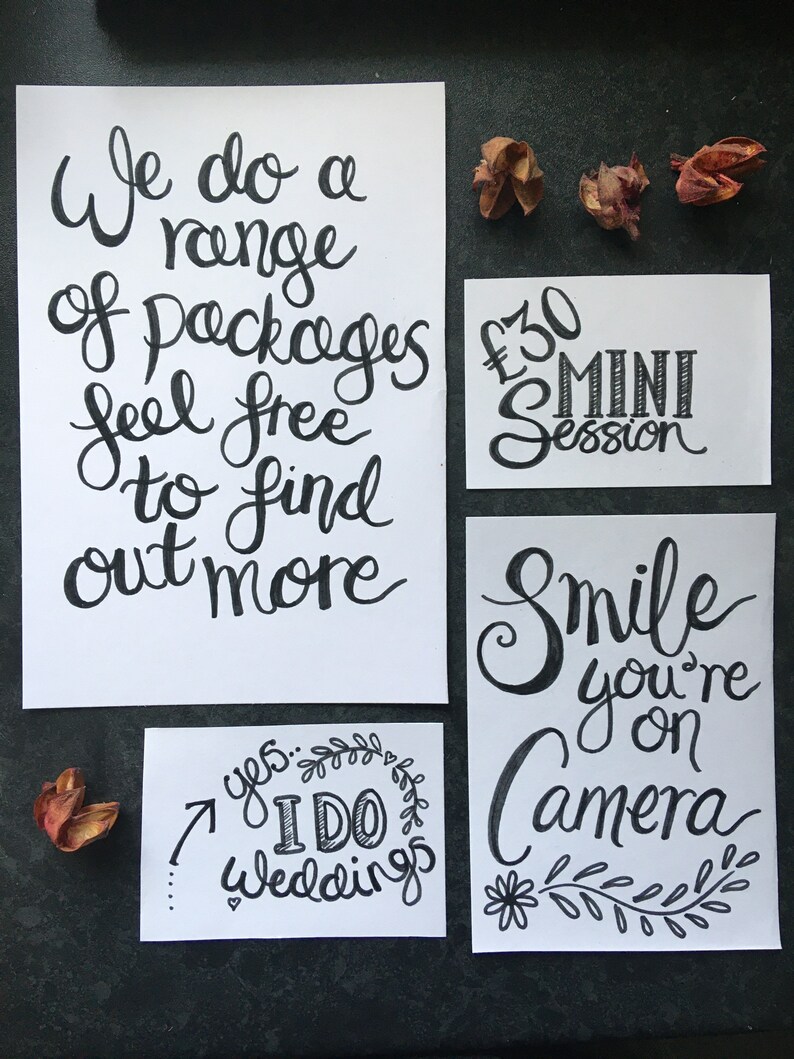 We do a
range
of packages
feel free
to find
out more
£30
MINI
Session
Smile
you're
on
Camera
yes..
I DO
Weddings